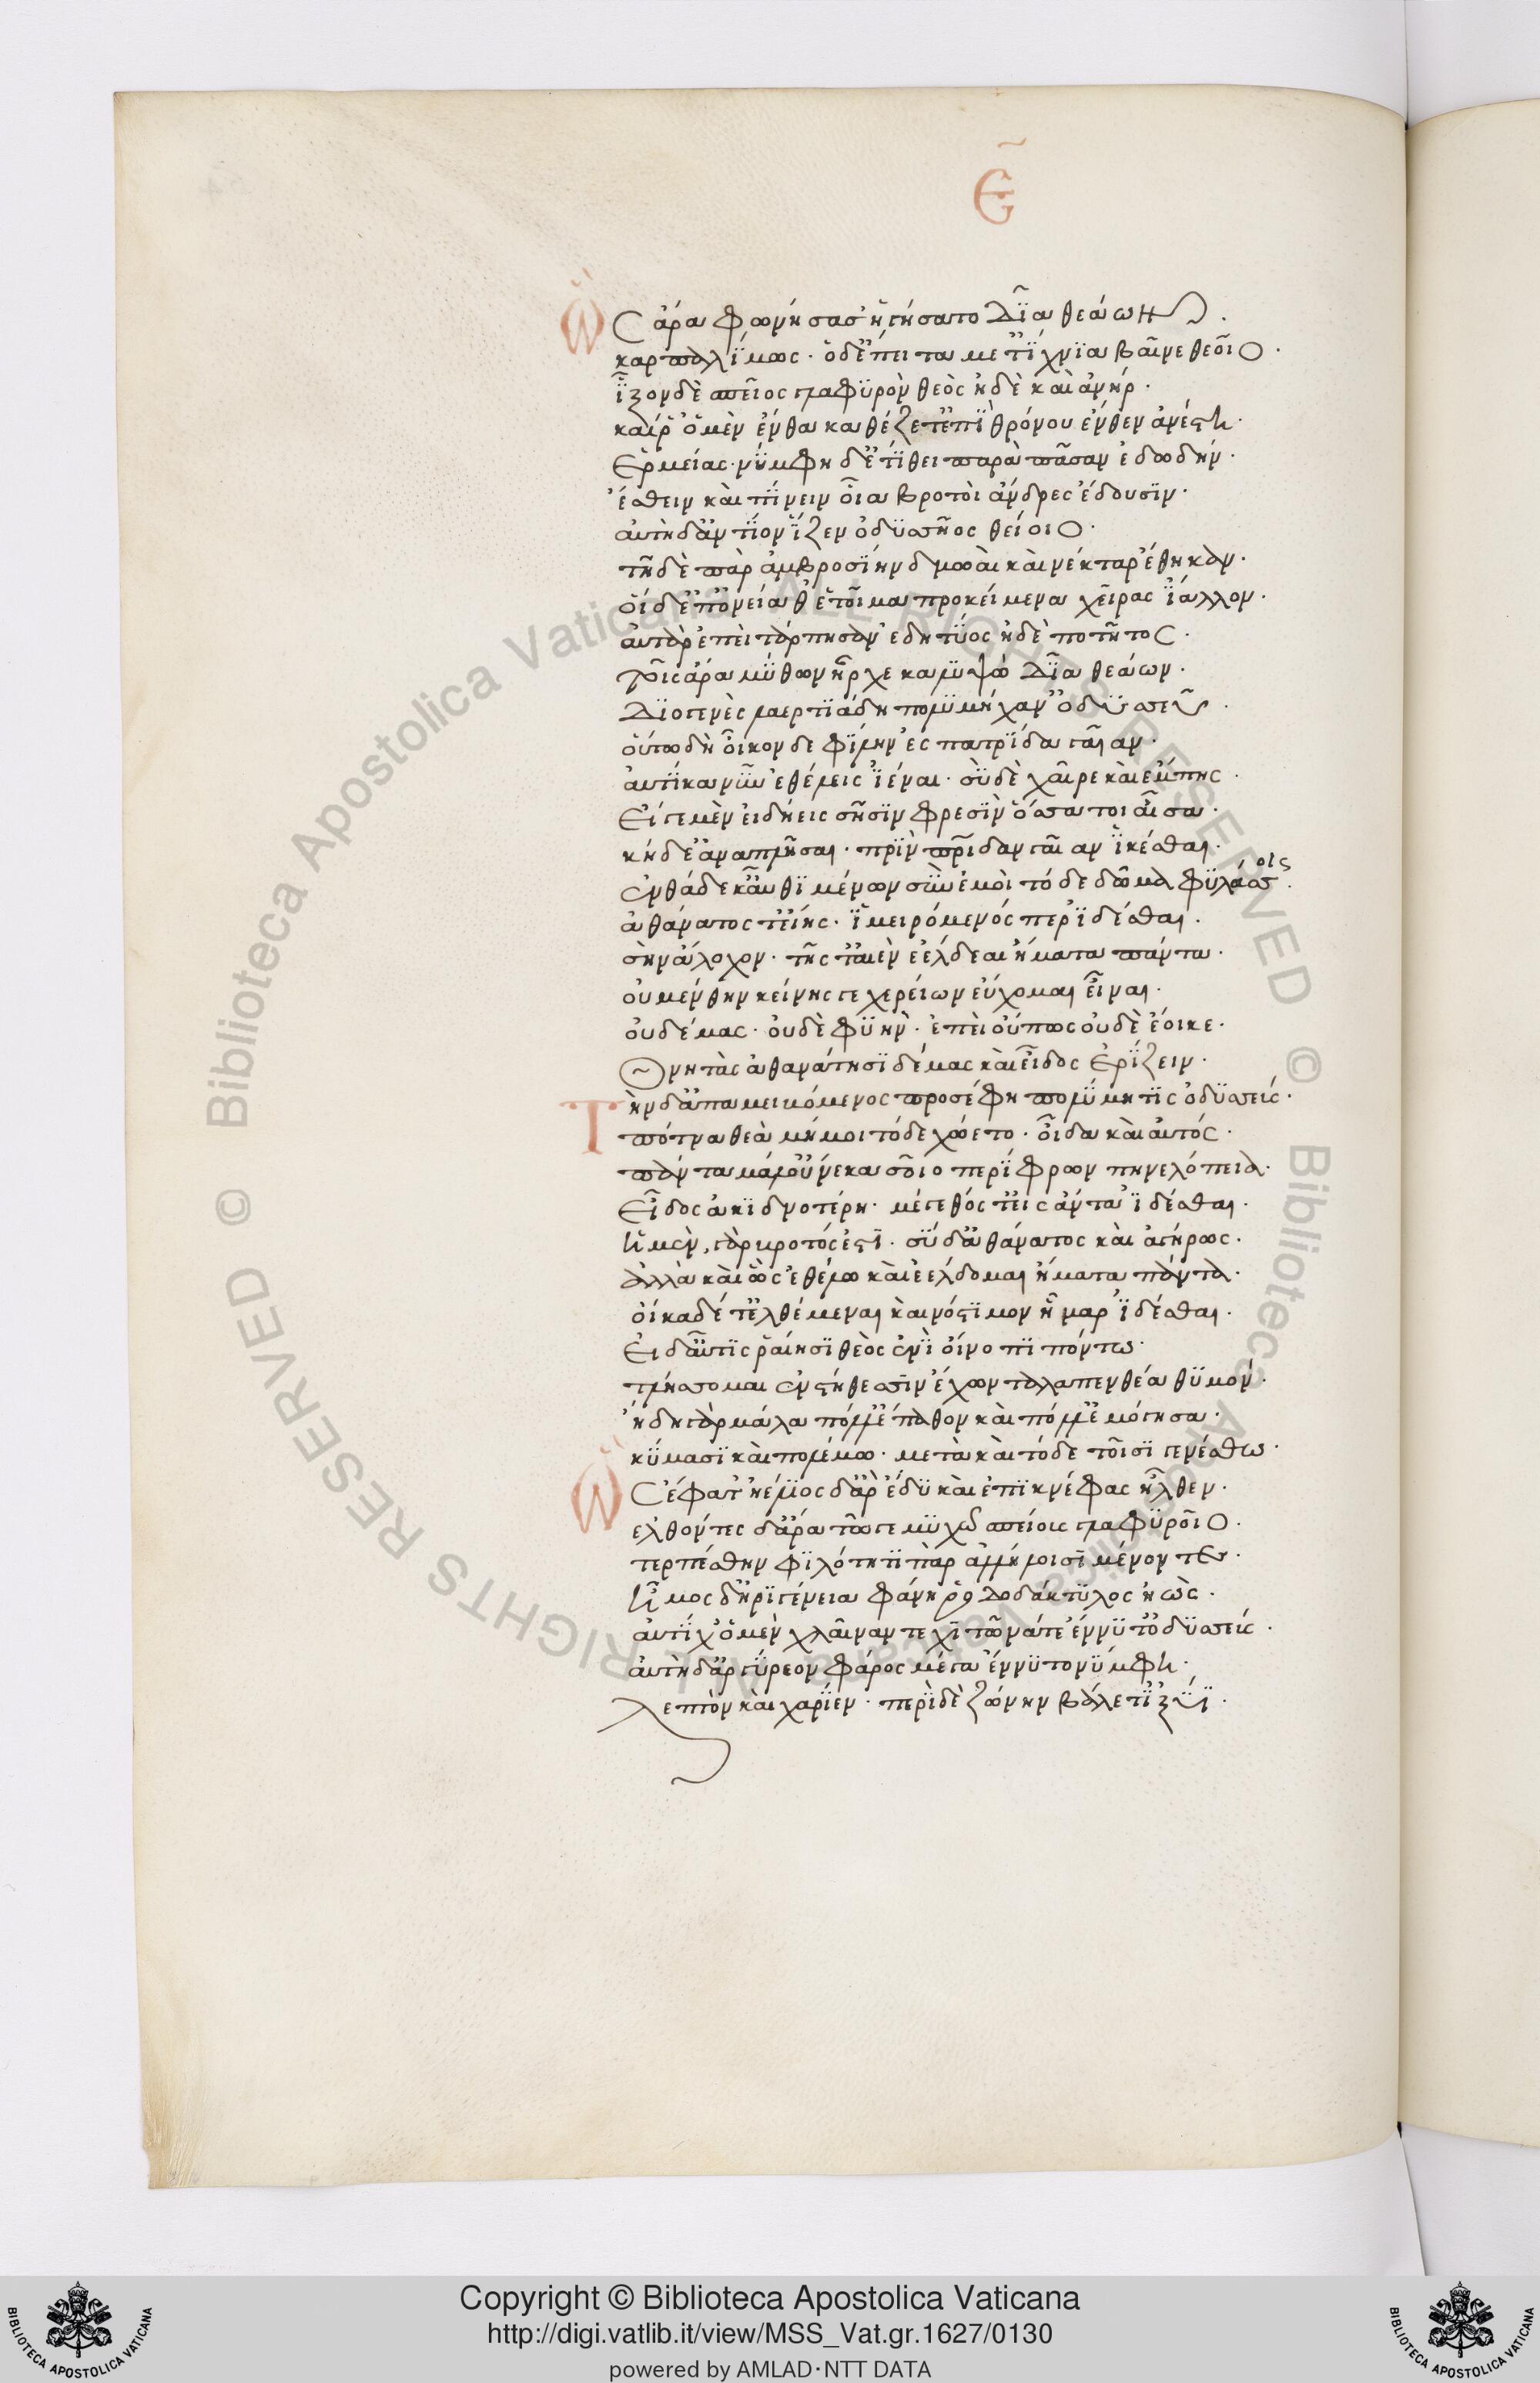 Ε
Ὣς ἄρα φωνήσασ' ἡγήσατο δῖα θεάων.
καρπαλίμως· ὁ δ' ἔπειτα μετ' ἴχνια βαῖνε θεοῖο.
ἷξον δὲ σπεῖος γλαφυρὸν θεὸς ἠδὲ καὶ ἀνήρ.
καί ῥ' ὁ μὲν ἔνθα καθέζετ' ἐπὶ θρόνου ἔνθεν ἀνέστη.
Ἑρμείας· νύμφη δ' ἐτίθει παρὰ πᾶσαν ἐδωδήν.
ἔσθειν καὶ πίνειν οἷα βροτοὶ ἄνδρες ἔδουσιν.
αὐτὴ δ' ἀντίον ἷζεν ὀδυσσῆος θείοιο.
τῇ δὲ παρ ἀμβροσίην δμωαὶ καὶ νέκταρ ἔθηκαν.
οἱ δ' ἐπ' ὀνείαθ' ἑτοῖμα προκείμενα χεῖρας ἴαλλον.
αὐτὰρ ἐπεὶ τάρπησαν ἐδητύος ἠδὲ ποτῆτος.
τοῖς ἄρα μύθων ἦρχε καλυψὼ δῖα θεάων.
Διογενὲς λαερτιάδη πολυμήχαν' ὀδυσσεῦ.
οὕτω δὴ οἶκον δὲ φίλην ἐς πατρίδα γαῖαν.
αὐτίκα νῦν ἐθέλεις ἰέναι· σὺ δὲ χαῖρε καὶ ἔμπης.
Εἴ γε μὲν εἰδείης σῇσιν φρεσὶν ὅσσα τοι αἶσα.
κήδε' ἀναπλῆσαι· πρὶν πατρίδα γαῖαν ἱκέσθαι.
ἐνθάδε κ' αὖθι μένων σὺν ἐμοὶ τόδε δῶμα φυλάσσοις.
ἀθάνατος τ' εἴης· ἱμειρόμενός περ ἰδέσθαι.
σὴν ἄλοχον· τῆς τ' αἰὲν ἐέλδεαι ἤματα πάντα.
οὐ μέν θην κείνης γε χερείων εὔχομαι εἶναι.
οὐ δέμας· οὐδὲ φυήν· ἐπεὶ οὔπως οὐδὲ ἔοικε.
Θνητὰς ἀθανάτῃσι δέμας καὶ εἶδος ἐρίζειν.
Τὴν δ' ἀπαμειβόμενος προσέφη πολύμητις ὀδυσσεύς.
πότνα θεὰ μή μοι τόδε χώεο· οἶδα καὶ αὐτός.
πάντα μάλ' οὕνεκα σοῖο περίφρων πηνελόπεια.
Εἶδος ἀκιδνοτέρη· μέγεθός τ' εἰς ἄντα ἰδέσθαι.
ἡ μὲν γὰρ βροτός ἐστι. σὺ δ' ἀθάνατος καὶ ἀγήρως.
ἀλλὰ καὶ ὣς ἐθέλω καὶ ἐέλδομαι ἤματα πάντα.
οἴκαδέ τ' ἐλθέμεναι καὶ νόστιμον ἦμαρ ἰδέσθαι.
Εἰ δ' αὖ τις ῥαίῃσι θεὸς ἐνὶ οἴνοπι πόντω.
τλήσομαι ἐν στήθεσσιν ἔχων ταλαπενθέα θυμόν.
ἤδη γὰρ μάλα πόλλ' ἔπαθον καὶ πόλλ' ἐμόγησα.
κύμασι καὶ πολέμω. μετὰ καὶ τόδε τοῖσι γενέσθω.
Ὣς ἔφατ' ἠέλιος δ' ἄρ' ἔδυ καὶ ἐπὶ κνέφας ἦλθεν.
ἐλθόντες δ' ἄρα τώγε μυχῶ σπείους γλαφυροῖο.
τερπέσθην φιλότητι παρ ἀλλήλοισι μένοντες.
ἦμος δ' ἠριγένεια φάνη ῥοδοδάκτυλος ἠώς.
αὐτίχ' ὁ μὲν χλαῖναν τε χιτῶνά τε ἕννυτ' ὀδυσσεύς.
αὐτὴ δ' ἀργύρεον φάρος μέγα ἕννυτο νύμφη.
λεπτὸν καὶ χαρίεν. περὶ δὲ ζώνην βάλετ' ἰξυῖ.
Copyright © Biblioteca Apostolica Vaticana
http://digi.vatlib.it/view/MSS_Vat.gr.1627/0130
powered by AMLAD·NTT DATA